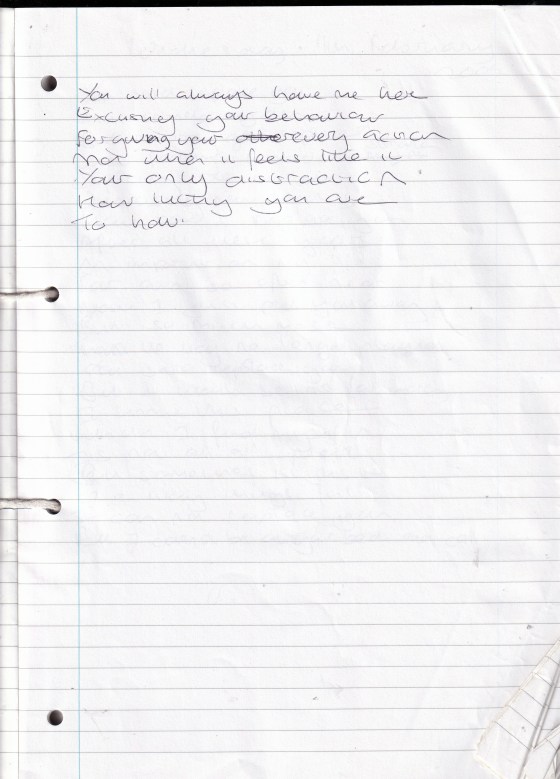 You will always have me here
Excusing your behaviour
Forgiving your every action
Not when it feels like it
Your only distraction
How lucky you are
To have